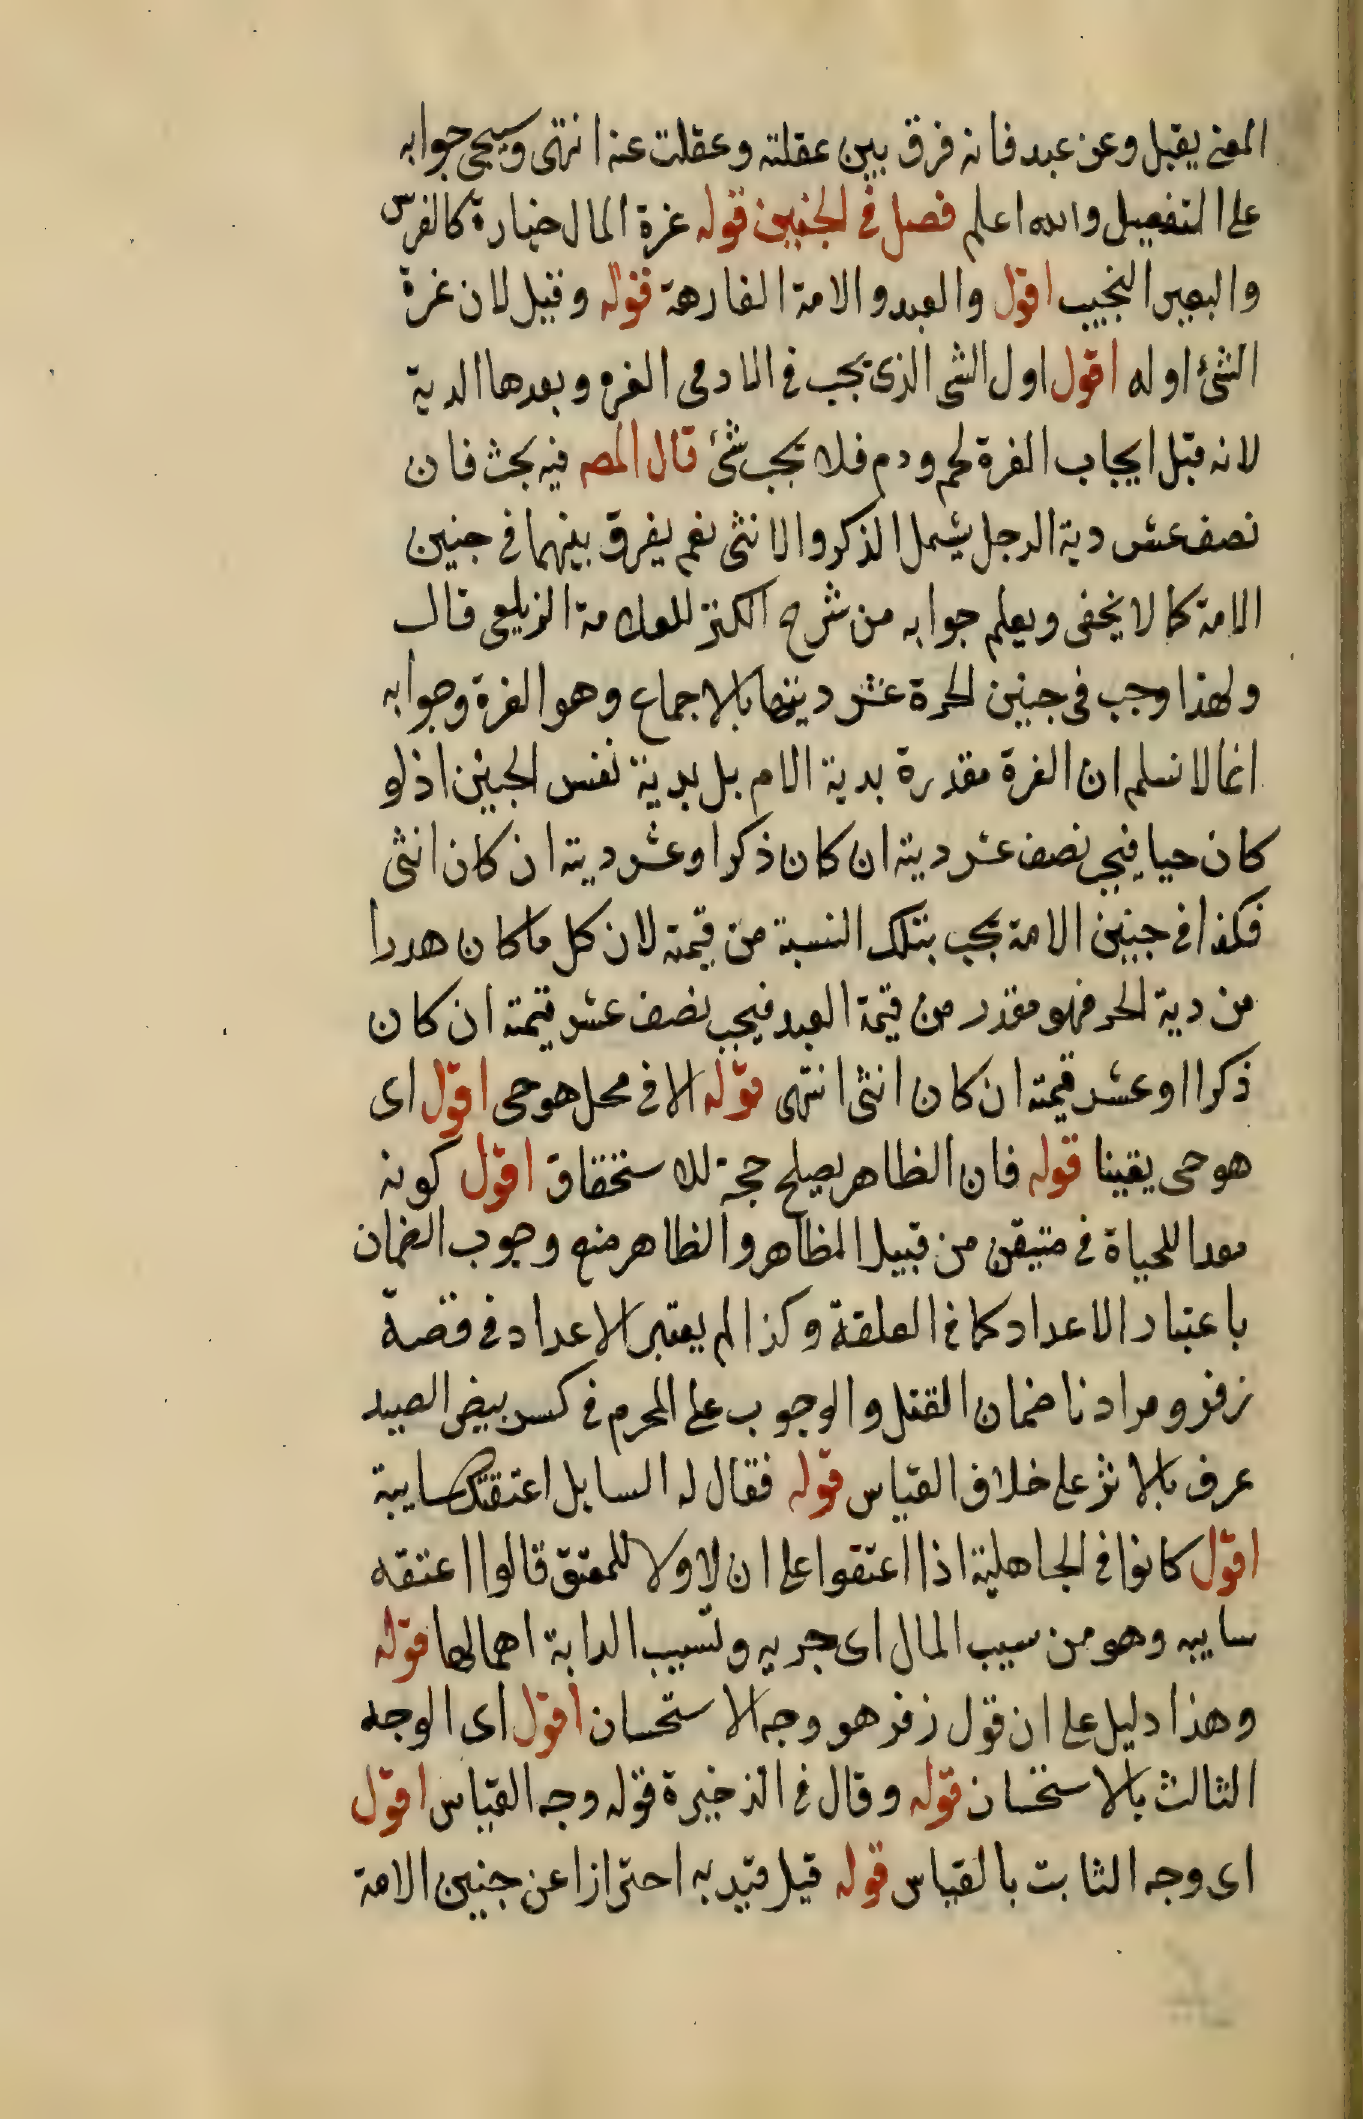 المغنى يقبل وعن عبد فانه فرق بين عقلته وعقلت عنه انتهى وسيجى جوابه
على التفصيل والله اعلم فصل فى الجنين قوله غرة المال خياره كالفرس
والبعير النجيب اقول والعبد والامة الفارهة قوله وقيل لان غرة
الشئ اوله اقول اول الشى الذى يجب فى الادمى الغرة وبعدها الدية
لانه قبل ايجاب الغرة لحم ودم فلا يجب شئ قال المصـ فيه بحث فان
نصف عشر دية الرجل يشمل الذكر والانثى نعم يفرق بينهما فى جنين
الامة كما لا يخفى ويعلم جوابه من شرح الكنز للعلامة الزيلعى قال
ولهذا وجب فى جنين الحرة عشر ديتها بالاجماع وهو الغرة وجوابه
انما لا نسلم ان الغرة مقدرة بدية الام بل بدية نفس الجنين اذ لو
كان حيا فيجب نصف عشر ديته ان كان ذكرا وعشر ديته ان كان انثى
فكذا فى جنين الامة يجب بتلك النسبة من قيمته لان كل ما كان هدرا
من دية الحر فهو مقدر من قيمة العبد فيجب نصف عشر قيمته ان كان
ذكرا او عشر قيمته ان كان انثى انتهى قوله الا فى محل هو حى اقول اى
هو حى يقينا قوله فان الظاهر يصلح حجة للاستحقاق اقول كونه
معدا للحياة فى متيقن من قبيل الظاهر والظاهر منع وجوب الضمان
باعتبار الاعداد كما فى العلقة وكذا لم يعتبر الاعداد فى قصة
زفر ومرادنا ضمان القتل والوجوب على المحرم فى كسر بيض الصيد
عرف بالاثر على خلاف القياس قوله فقال له السايل اعتقتك سايبة
اقول كانوا فى الجاهلية اذا اعتقوا على ان لا ولا للمعتق قالوا اعتقه
سايبه وهو من سيب المال اى جريه وتسيب الدابة اهمالها قوله
وهذا دليل على ان قول زفر هو وجه الاستحسان اقول اى الوجه
الثالث بالاستحسان قوله وقال فى الذخيرة قوله وجه القياس اقول
اى وجه الثابت بالقياس قوله قيل قيد به احترازا عن جنين الامة